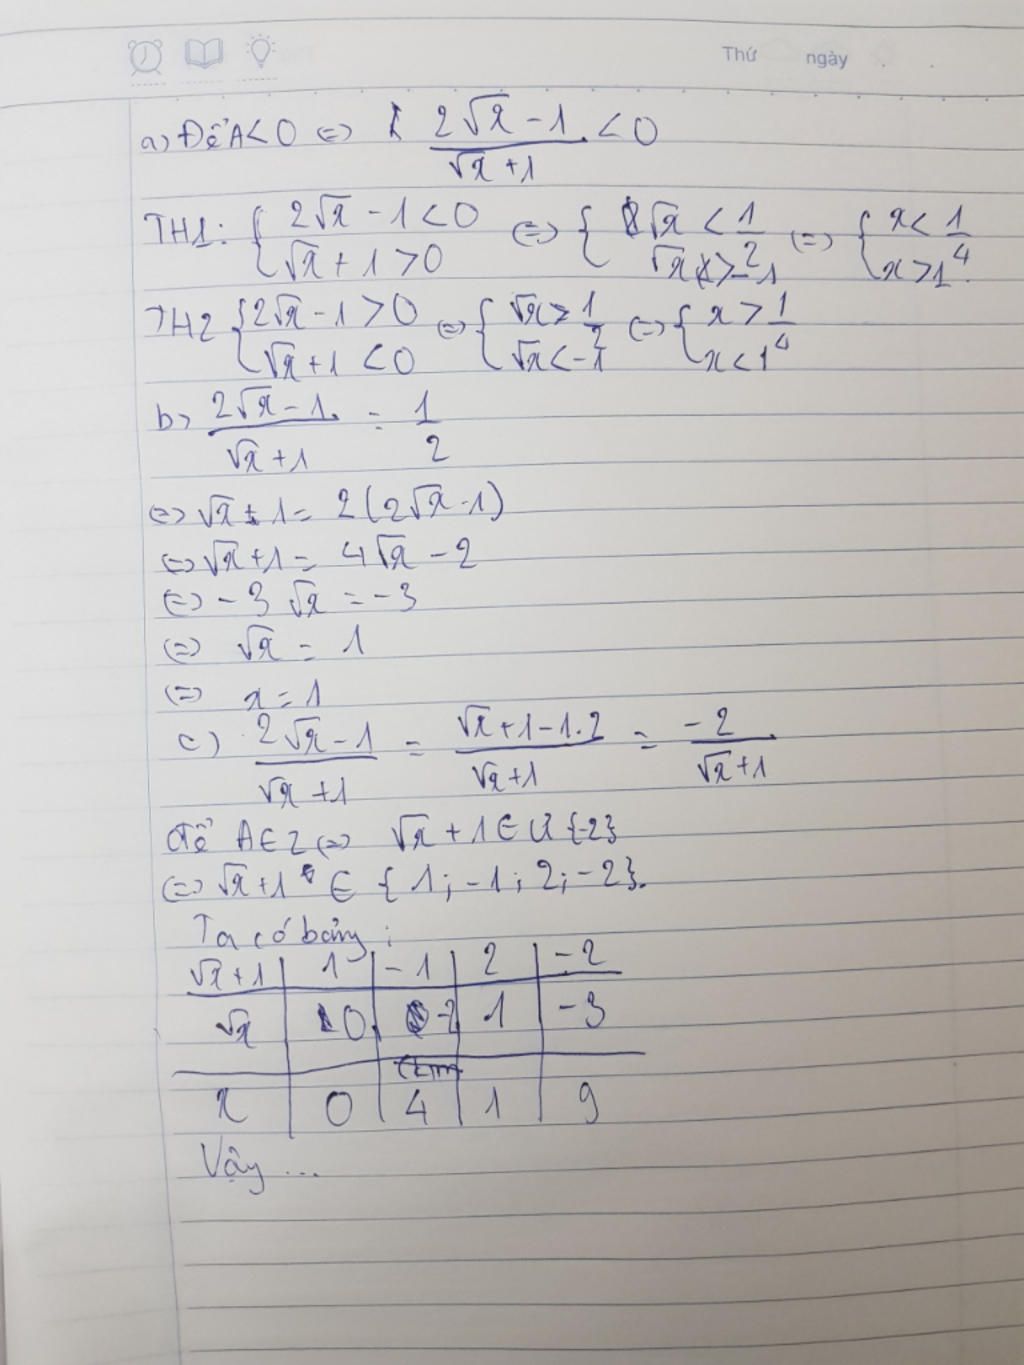 Thứ ngày
a) Để A < 0 (=) 2√x - 1 / √x + 1 < 0
TH1: { 2√x - 1 < 0 ; √x + 1 > 0 (=) { √x < 1/2 ; √x > -1 (=) { x < 1/4 ; x > 1
TH2 { 2√x - 1 > 0 ; √x + 1 < 0 (=) { √x > 1/2 ; √x < -1 (=) { x > 1/4 ; x < 1
b) 2√x - 1 / √x + 1 = 1/2
(=) √x + 1 = 2(2√x - 1)
(=) √x + 1 = 4√x - 2
(=) - 3√x = - 3
(=) √x = 1
(=) x = 1
c) 2√x - 1 / √x + 1 = √x + 1 - 1.2 / √x + 1 = -2 / √x + 1
để A ∈ Z (=) √x + 1 ∈ Ư {-2}
(=) √x + 1 ∈ {1; -1; 2; -2}.
Ta có bảng:
√x + 1 | 1 | -1 | 2 | -2
√x | 0 | -2 | 1 | -3
x | 0 | 4 | 1 | 9
Vậy ...